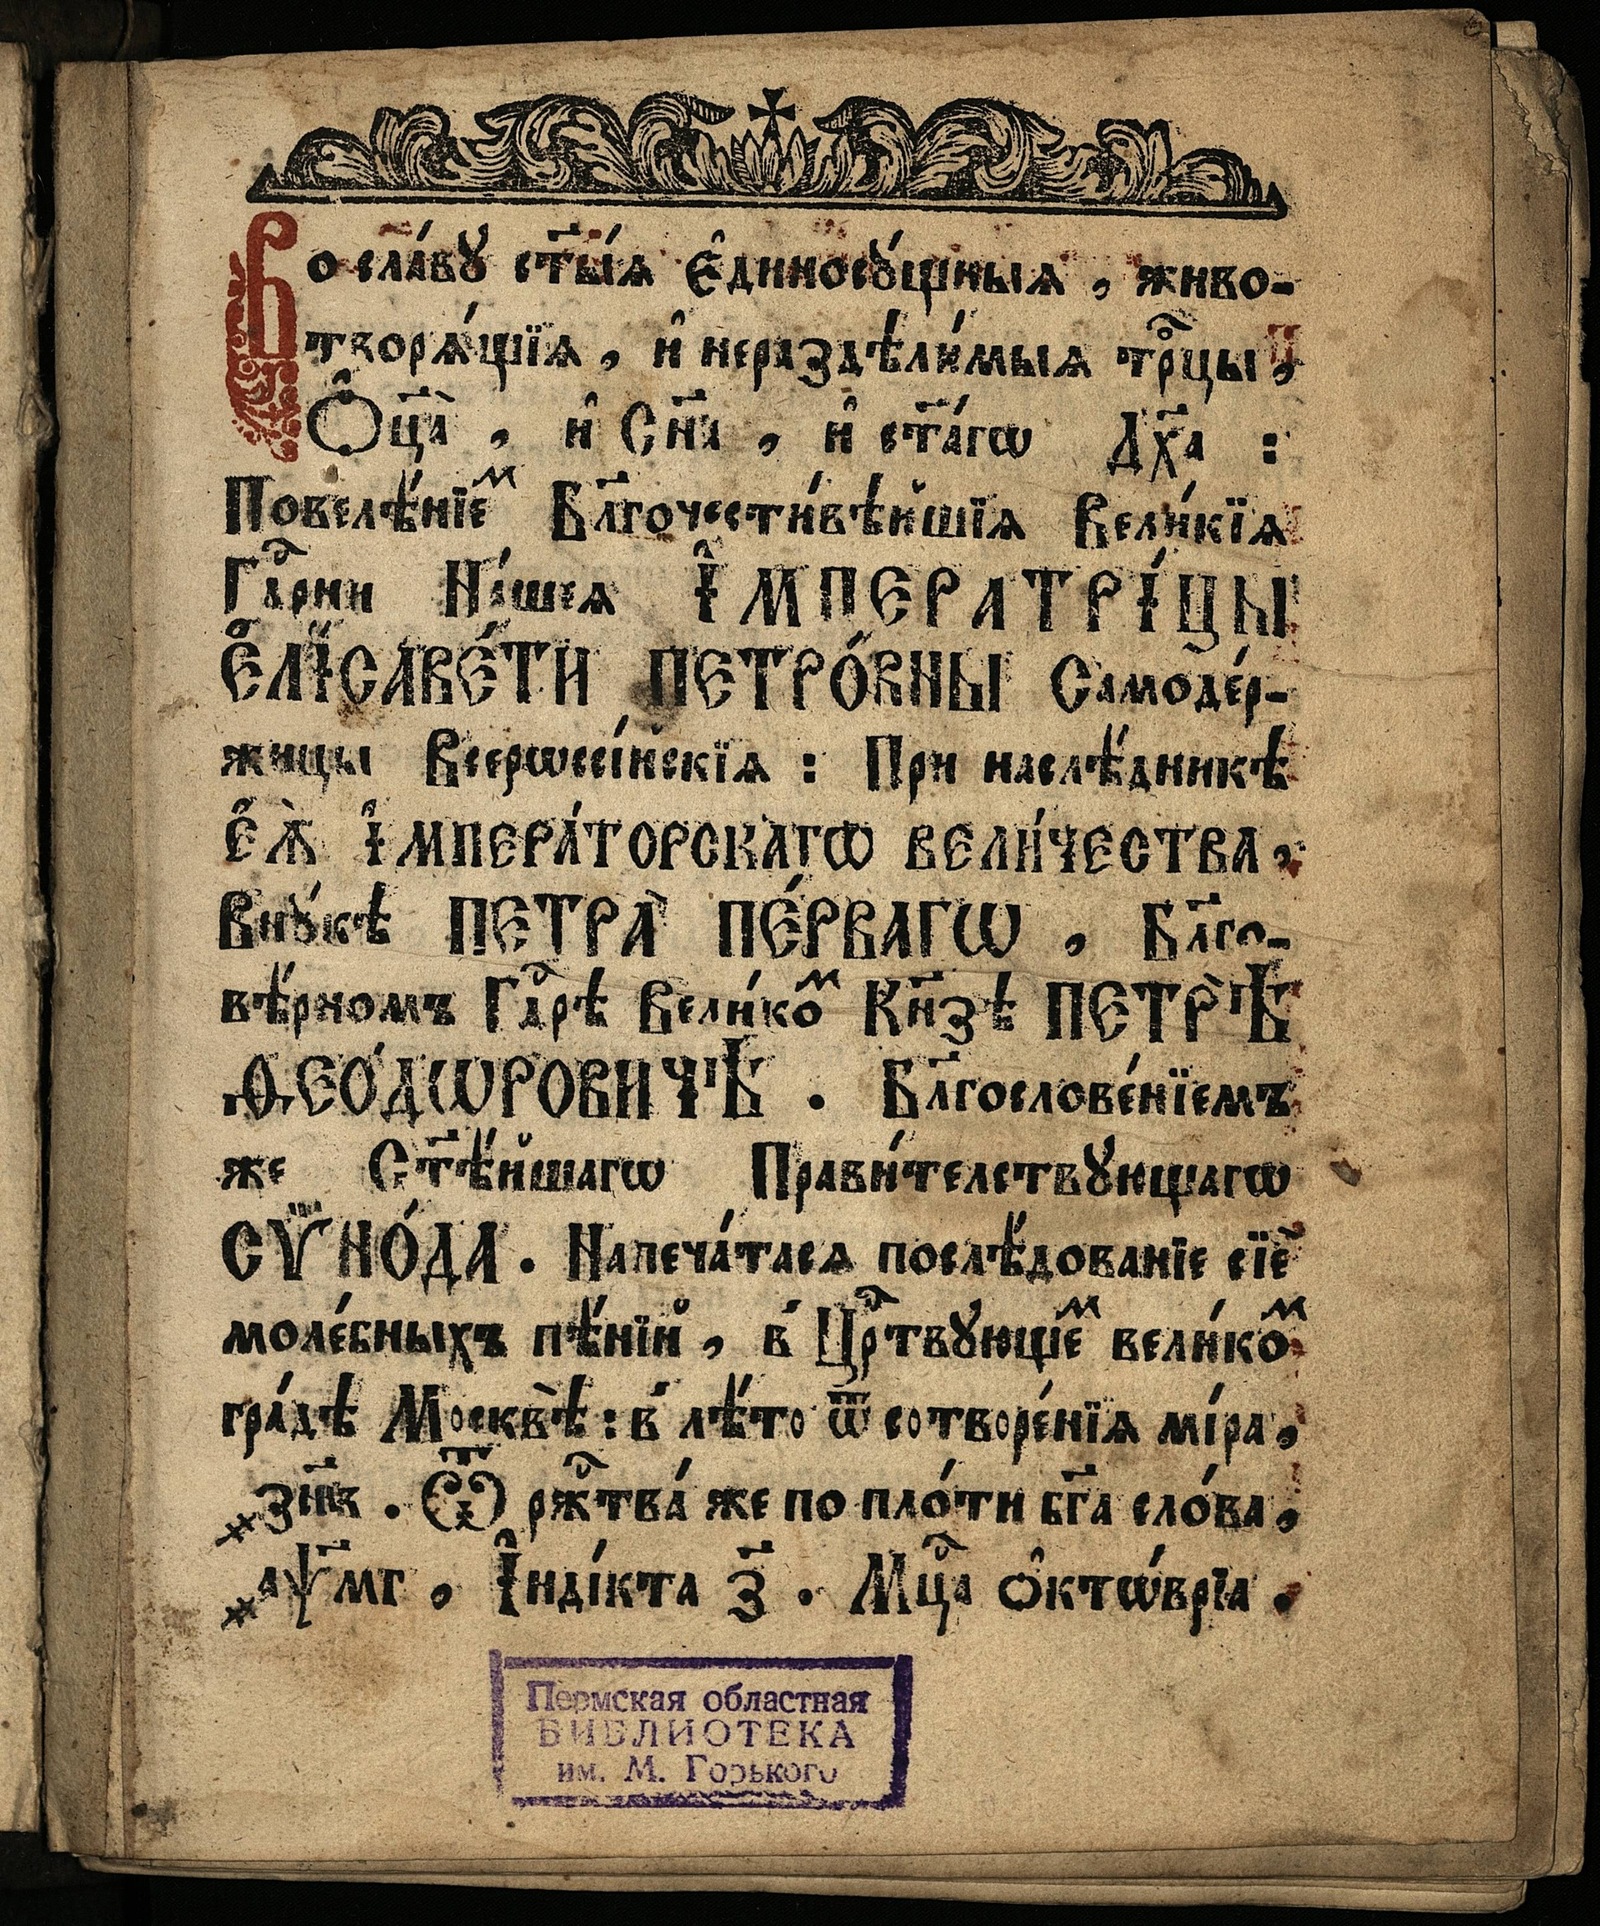 Во сла́вꙋ ст҃ы́ѧ є҆диносꙋ́щныѧ, живо-
творѧ́щїѧ, и҆ нераздѣли́мыѧ трⷪ҇цы,
Ѻ҆ц҃а̀, и҆ Сн҃а, и҆ ст҃а́гѡ Дх҃а :
Повелѣ́нїеⷨ Бл҃гочести́вѣйшїѧ Вели́кїѧ
Гдⷭ҇рни На́шеѧ І҆МПЕРАТРІ́ЦЫ
Е҆ЛІСАВЕ́ТИ ПЕТРО́ВНЫ Самоде́р-
жицы Всерѡссі́йскїѧ : При наслѣ́дникѣ
Е҆Ѧ̀ І҆МПЕРА́ТОРСКАГѠ ВЕЛИ́ЧЕСТВА,
Внꙋ́кѣ ПЕТРА̀ ПЕ́РВАГѠ, Бл҃го-
вѣ́рномъ Гдⷭ҇рѣ Вели́коⷨ Кн҃зѣ ПЕТРѢ̀
Ѳ҆ЕО́ДѠРОВИЧѢ. Бл҃гослове́нїемъ
же Ст҃ѣ́йшагѡ Прави́телствꙋющагѡ
СѴ̈НО́ДА. Напеча́тасѧ послѣ́дованїе сїѐ
моле́бныхъ пѣ́нїй, в̾ Црⷭ҇твꙋющеⷨ вели́коⷨ
гра́дѣ Москвѣ̀ : в̾ лѣ́то ѿ сотворе́нїѧ мі́ра,
҂зс҃нв. Ѿ ржⷭ҇тва́ же по пло́ти бг҃а сло́ва,
҂аѱ҃мг, І҆ндікта з҃. Мцⷭ҇а ѻ҆ктѡ́врїа.
Пермская областная
БИБЛИОТЕКА
им. М. Горького